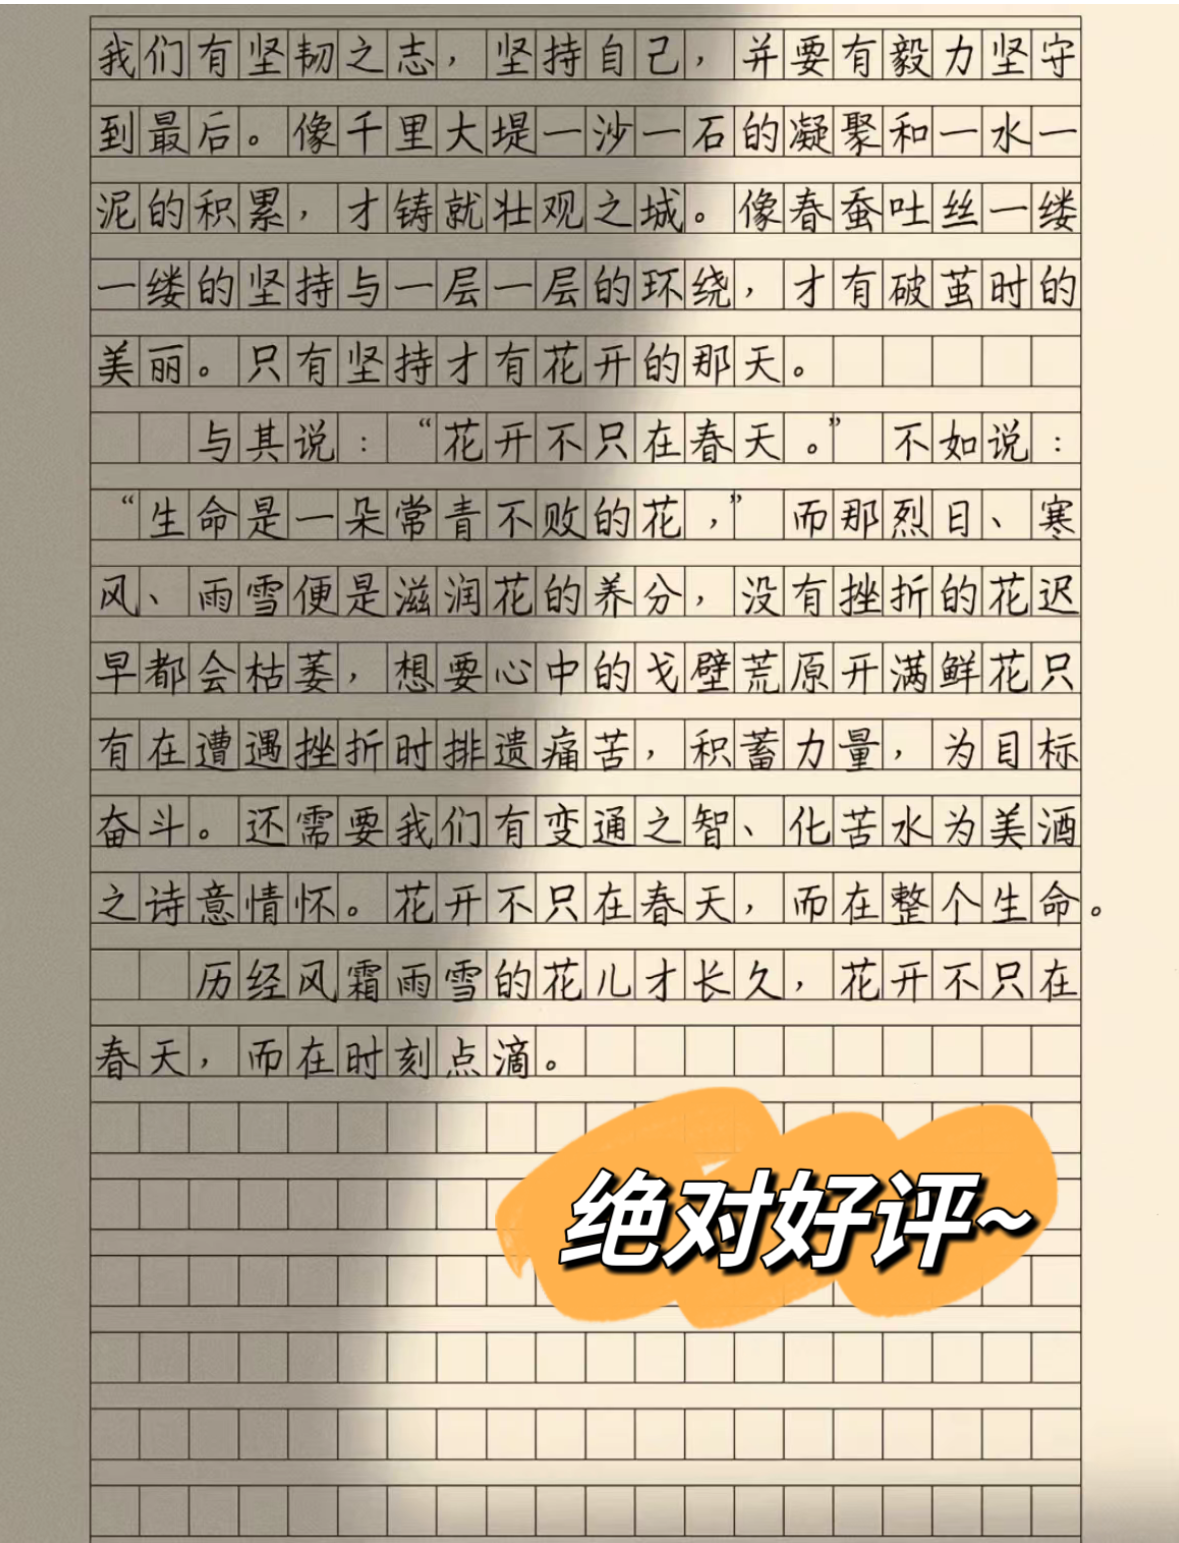 我们有坚韧之志，坚持自己，并要有毅力坚守
到最后。像千里大堤一沙一石的凝聚和一水一
泥的积累，才铸就壮观之城。像春蚕吐丝一缕
一缕的坚持与一层一层的环绕，才有破茧时的
美丽。只有坚持才有花开的那天。
与其说：“花开不只在春天。”不如说：
“生命是一朵常青不败的花，”而那烈日、寒
风、雨雪便是滋润花的养分，没有挫折的花迟
早都会枯萎，想要心中的戈壁荒原开满鲜花只
有在遭遇挫折时排遗痛苦，积蓄力量，为目标
奋斗。还需要我们有变通之智、化苦水为美酒
之诗意情怀。花开不只在春天，而在整个生命。
历经风霜雨雪的花儿才长久，花开不只在
春天，而在时刻点滴。
绝对好评~